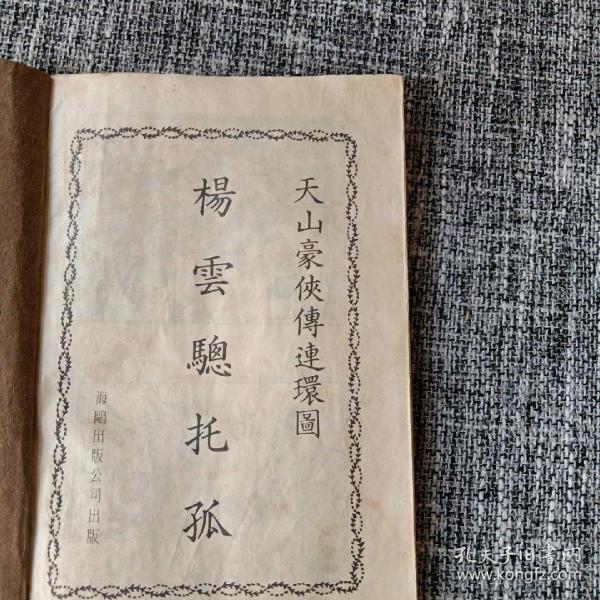 天山豪俠傳連環圖
楊雲驄托孤
海鷗出版公司出版
孔夫子旧书网
www.kongfz.com